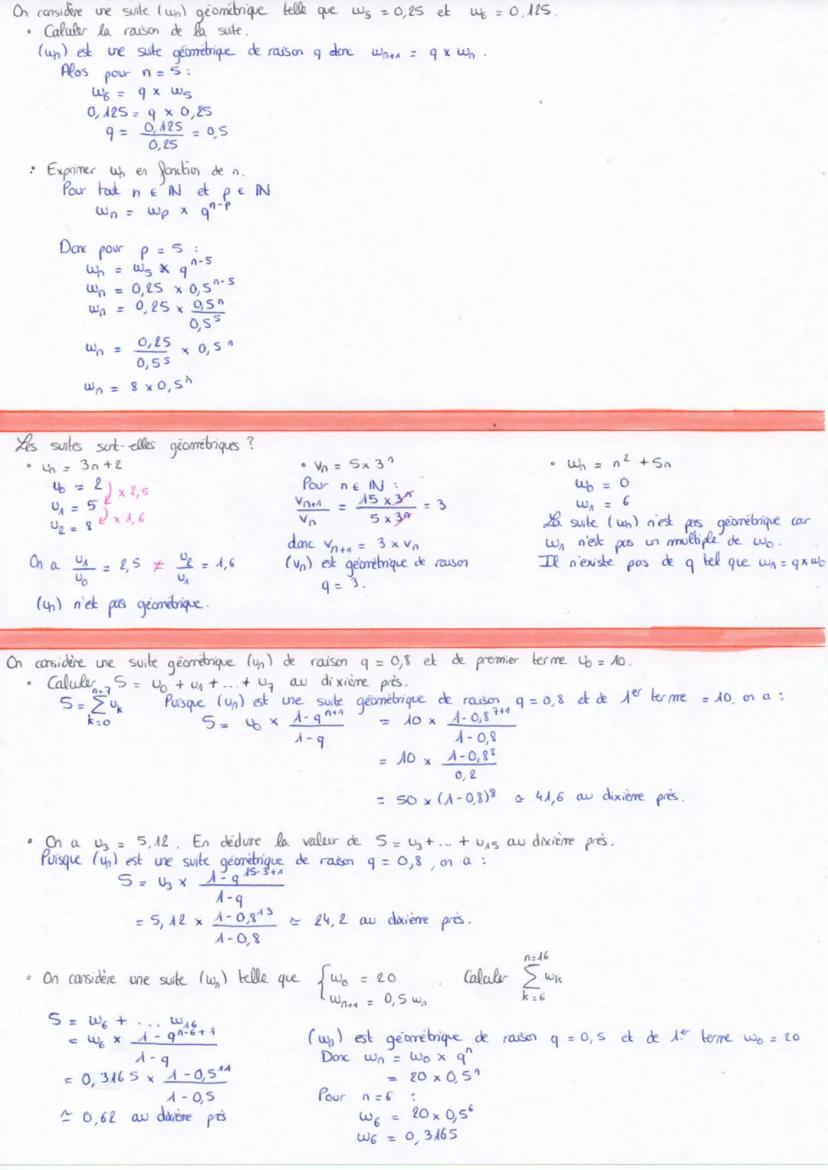 On considère une suite (wn) géométrique telle que w5 = 0,25 et w6 = 0,125.
• Calculer la raison de la suite.
(wn) est une suite géométrique de raison q donc wn+1 = q × wn.
Alors pour n = 5 :
w6 = q × w5
0,125 = q × 0,25
q = 0,125 / 0,25 = 0,5
• Exprimer wn en fonction de n.
Pour tout n ∈ ℕ et p ∈ ℕ
wn = wp × q^(n-p)
Donc pour p = 5 :
wn = w5 × q^(n-5)
wn = 0,25 × 0,5^(n-5)
wn = 0,25 × 0,5^n / 0,5^5
wn = 0,25 / 0,5^5 × 0,5^n
wn = 8 × 0,5^n
Les suites sont-elles géométriques ?
• un = 3n+2
u0 = 2
u1 = 5
u2 = 8
× 2,5
× 1,6
On a u1/u0 = 2,5 ≠ u2/u1 = 1,6
(un) n'est pas géométrique.
• Vn = 5 × 3^n
Pour n ∈ ℕ :
Vn+1 / Vn = 15 × 3^n / 5 × 3^n = 3
donc Vn+1 = 3 × Vn
(Vn) est géométrique de raison
q = 3.
• wn = n² + 5n
w0 = 0
w1 = 6
La suite (wn) n'est pas géométrique car
w1 n'est pas un multiple de w0.
Il n'existe pas de q tel que w1 = q × w0
On considère une suite géométrique (un) de raison q = 0,8 et de premier terme u0 = 10.
• Calculer S = u0 + u1 + ... + u7 au dixième près.
S = Σ (k=0, n=7) uk
Puisque (un) est une suite géométrique de raison q = 0,8 et de 1er terme = 10, on a :
S = u0 × (1-q^(n+1)) / (1-q) = 10 × (1-0,8^(7+1)) / (1-0,8)
= 10 × (1-0,8^8) / 0,2
= 50 × (1-0,8)^8 ≃ 41,6 au dixième près.
• On a u3 = 5,12. En déduire la valeur de S = u3 + ... + u15 au dixième près.
Puisque (un) est une suite géométrique de raison q = 0,8, on a :
S = u3 × (1-q^(15-3+1)) / (1-q)
= 5,12 × (1-0,8^13) / (1-0,8) ≃ 24,2 au dixième près.
• On considère une suite (wn) telle que { w0 = 20
wn+1 = 0,5 wn . Calculer Σ (k=6, n=16) wk
S = w6 + ... w16
= w6 × (1-q^(n-6+1)) / (1-q)
= 0,3165 × (1-0,5^11) / (1-0,5)
≃ 0,62 au dixième près
(wn) est géométrique de raison q = 0,5 et de 1er terme w0 = 20
Donc wn = w0 × q^n
= 20 × 0,5^n
Pour n = 6 :
w6 = 20 × 0,5^6
w6 = 0,3165